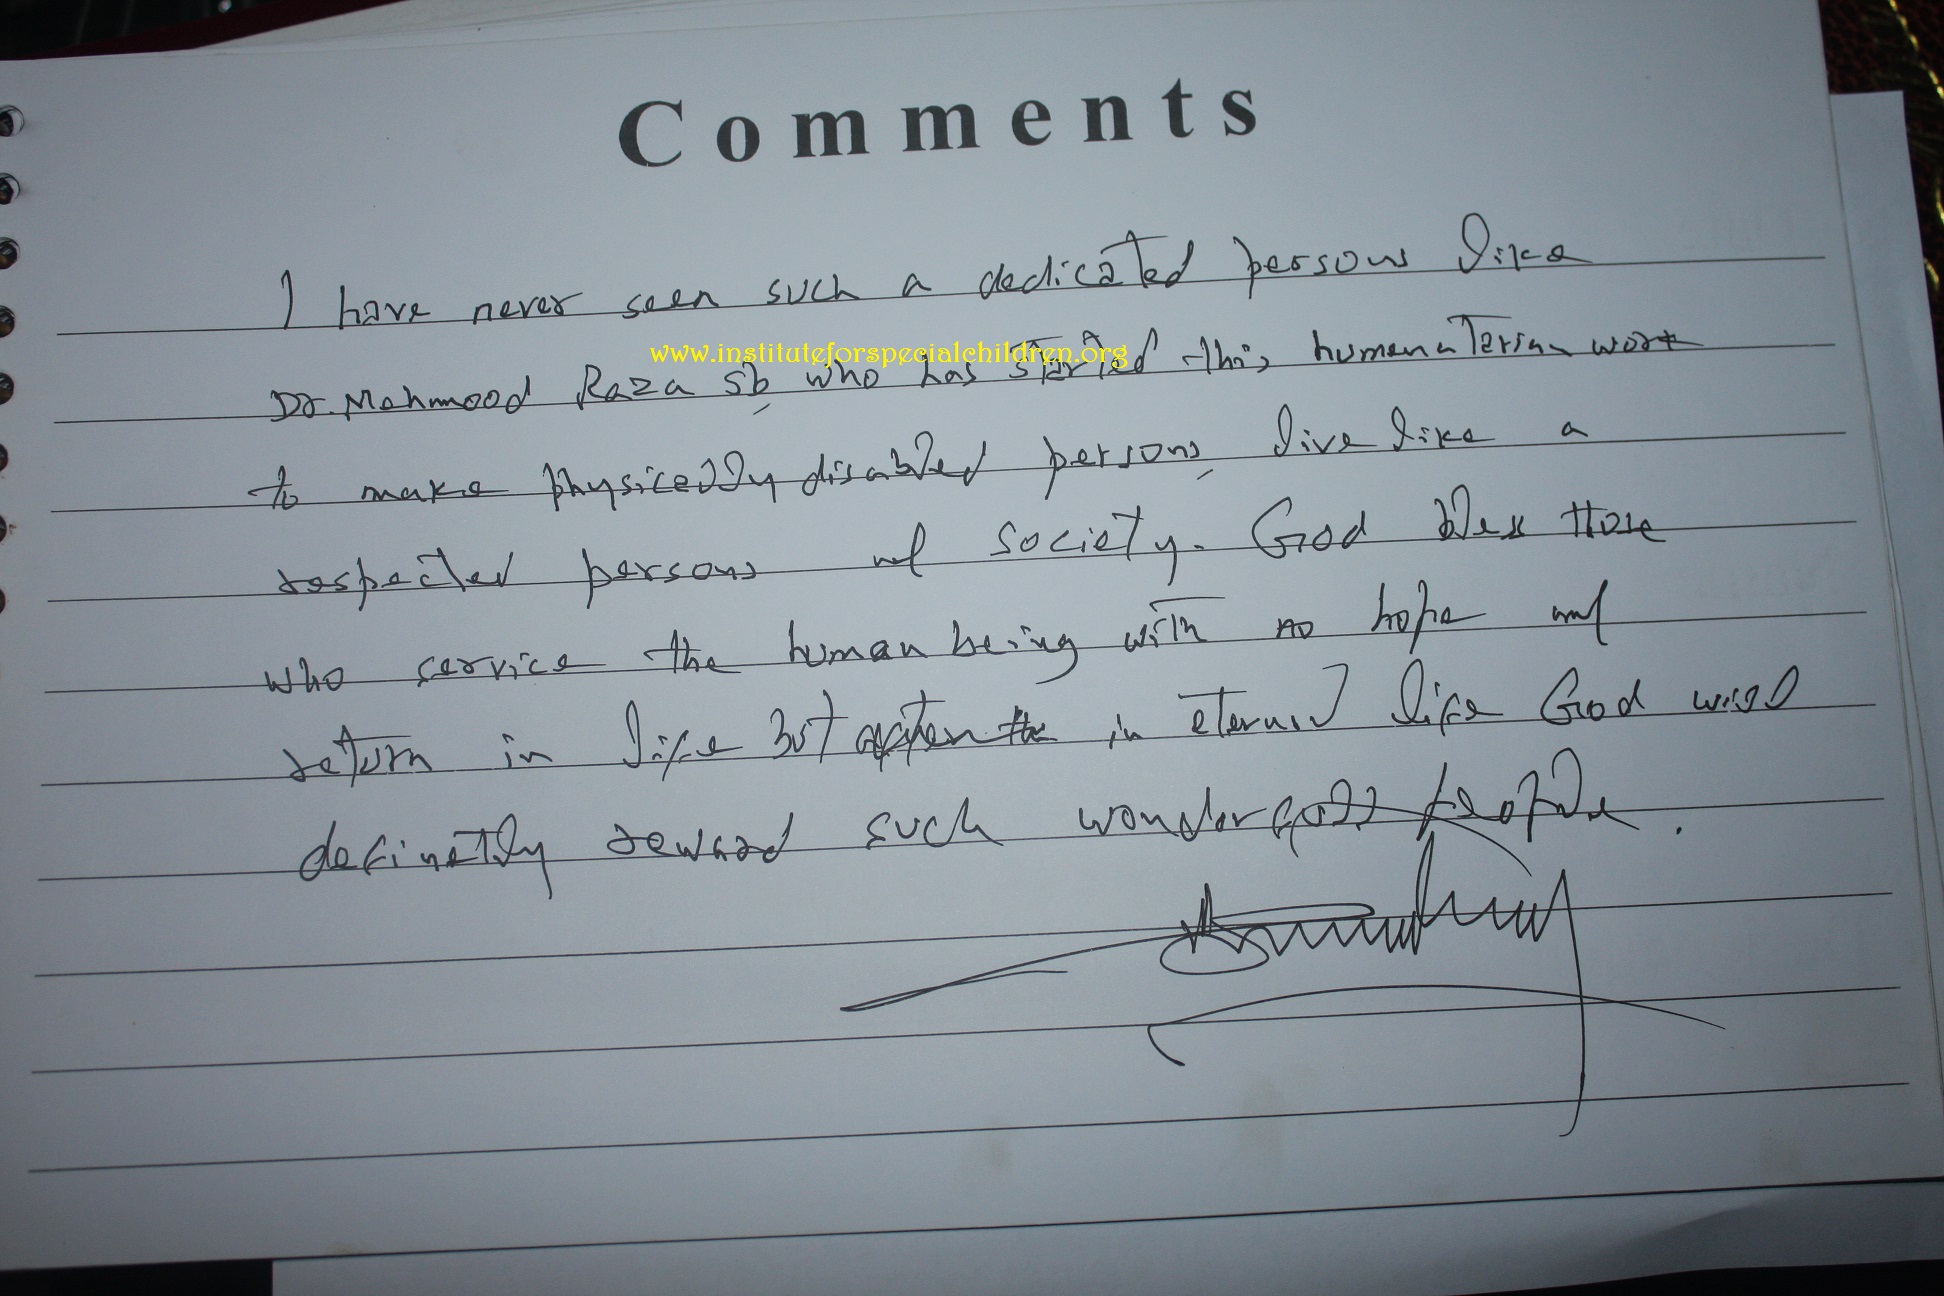 Comments
I have never seen such a dedicated persons like
www.instituteforspecialchildren.org
Dr. Mahmood Raza Sb, who has started this humanaterian work
to make physically disabled persons, live like a
respected persons of society. God bless those
who service the human being with no hope of
return in life but in eternal life God will
definetly reward such wonderfull people.